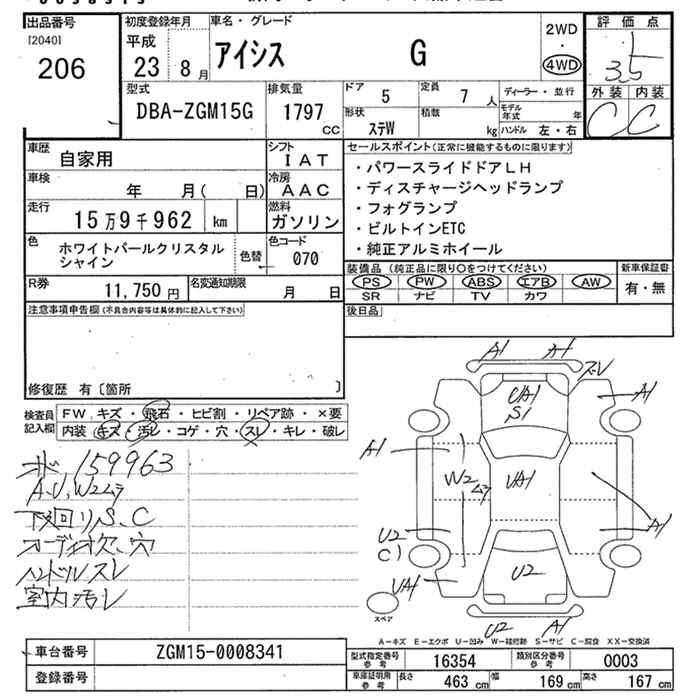 出品番号
[2040]
206
初度登録年月
平成
23 8月
車名・グレード
アイシス G
2WD
・
4WD
評価点
3.5
外装 内装
C C
型式
DBA-ZGM15G
排気量
1797 CC
ドア 5
定員 7人
ディーラー・並行
形状 ステW
積載 kg
モデル年式 年
ハンドル 左・右
車歴
自家用
シフト
IAT
車検 年 月( 日)
冷房
AAC
走行
15万9千962 km
燃料
ガソリン
色
ホワイトパールクリスタル
シャイン
色替
色コード
070
R券
11,750円
名変通知期限
月 日
セールスポイント(正常に機能するものに限ります)
・パワースライドドアLH
・ディスチャージヘッドランプ
・フォグランプ
・ビルトインETC
・純正アルミホイール
装備品(純正品に限り○をつけてください)
PS PW ABS エアB AW
SR ナビ TV カワ
新車保証書
有・無
後日品
注意事項申告欄(不具合内容等は具体的に記入して下さい)
修復歴 有〔箇所 〕
検査員
記入欄
FW、キズ・飛石・ヒビ割・リペア跡・×要
内装 キズ・汚レ・コゲ・穴・スレ・キレ・破レ
159963
A、U、W2ムラ
下廻り、S、C
オーディオ欠、穴
ハンドルスレ
室内汚レ
A1
A1
ズレ
A1
UA1
S1
A1
W2ムラ
UA1
A1
U2
C1
UA1
U2
U2
A1
スペア
A−キズ E−エクボ U−凹み W−補修跡 S−サビ C−腐食 XX−交換済
車台番号 ZGM15-0008341
登録番号
型式指定番号
参考
16354
類別区分番号
参考
0003
車庫証明用
参考
長さ 463 cm
幅 169 cm
高さ 167 cm